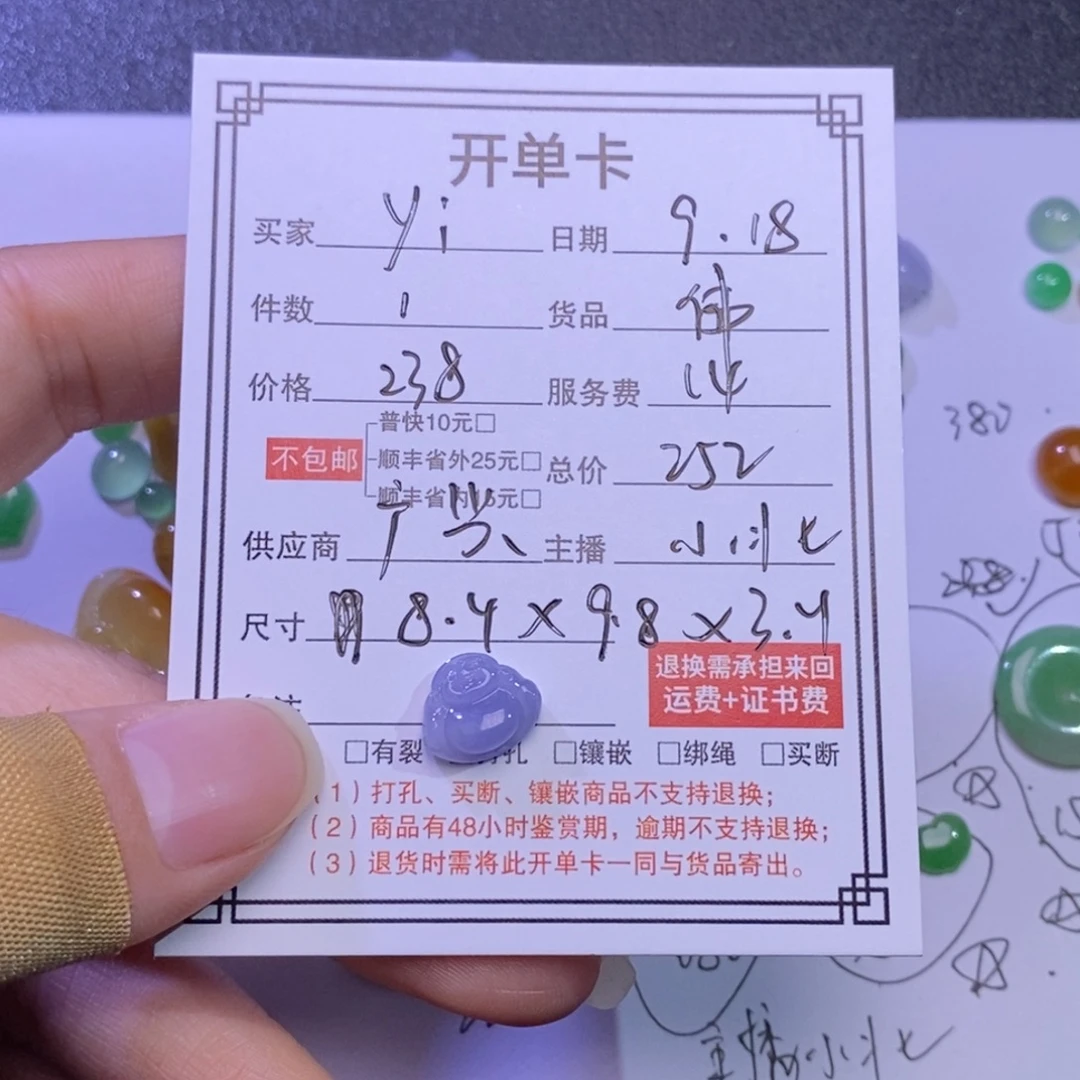 开单卡
买家 yi 日期 9.18
件数 1 货品 佛
价格 238 服务费 14
普快10元□
不包邮 顺丰省外25元□ 总价 252
顺丰省内15元□
供应商 主播 小州七
尺寸 8.4×9.8×3.4
退换需承担来回
运费+证书费
□有裂 打孔 □镶嵌 □绑绳 □买断
(1)打孔、买断、镶嵌商品不支持退换;
(2)商品有48小时鉴赏期,逾期不支持退换;
(3)退货时需将此开单卡一同与货品寄出。
380
主播小州七